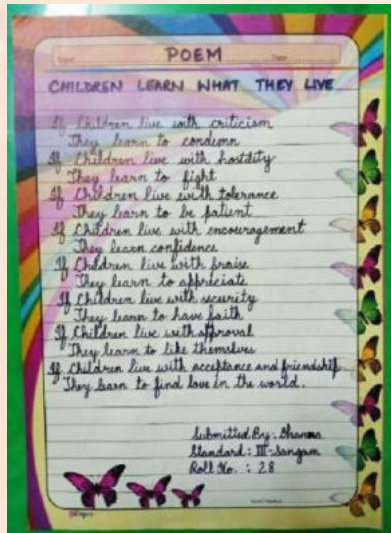 POEM
CHILDREN LEARN WHAT THEY LIVE
If Children live with criticism
They learn to condemn
If Children live with hostility
They learn to fight
If Children live with tolerance
They learn to be patient
If Children live with encouragement
They learn confidence
If Children live with praise
They learn to appreciate
If Children live with security
They learn to have faith
If Children live with approval
They learn to like themselves
If Children live with acceptance and friendship
They learn to find love in the world.
Submitted By:
Standard: III-Sangam
Roll No. : 28